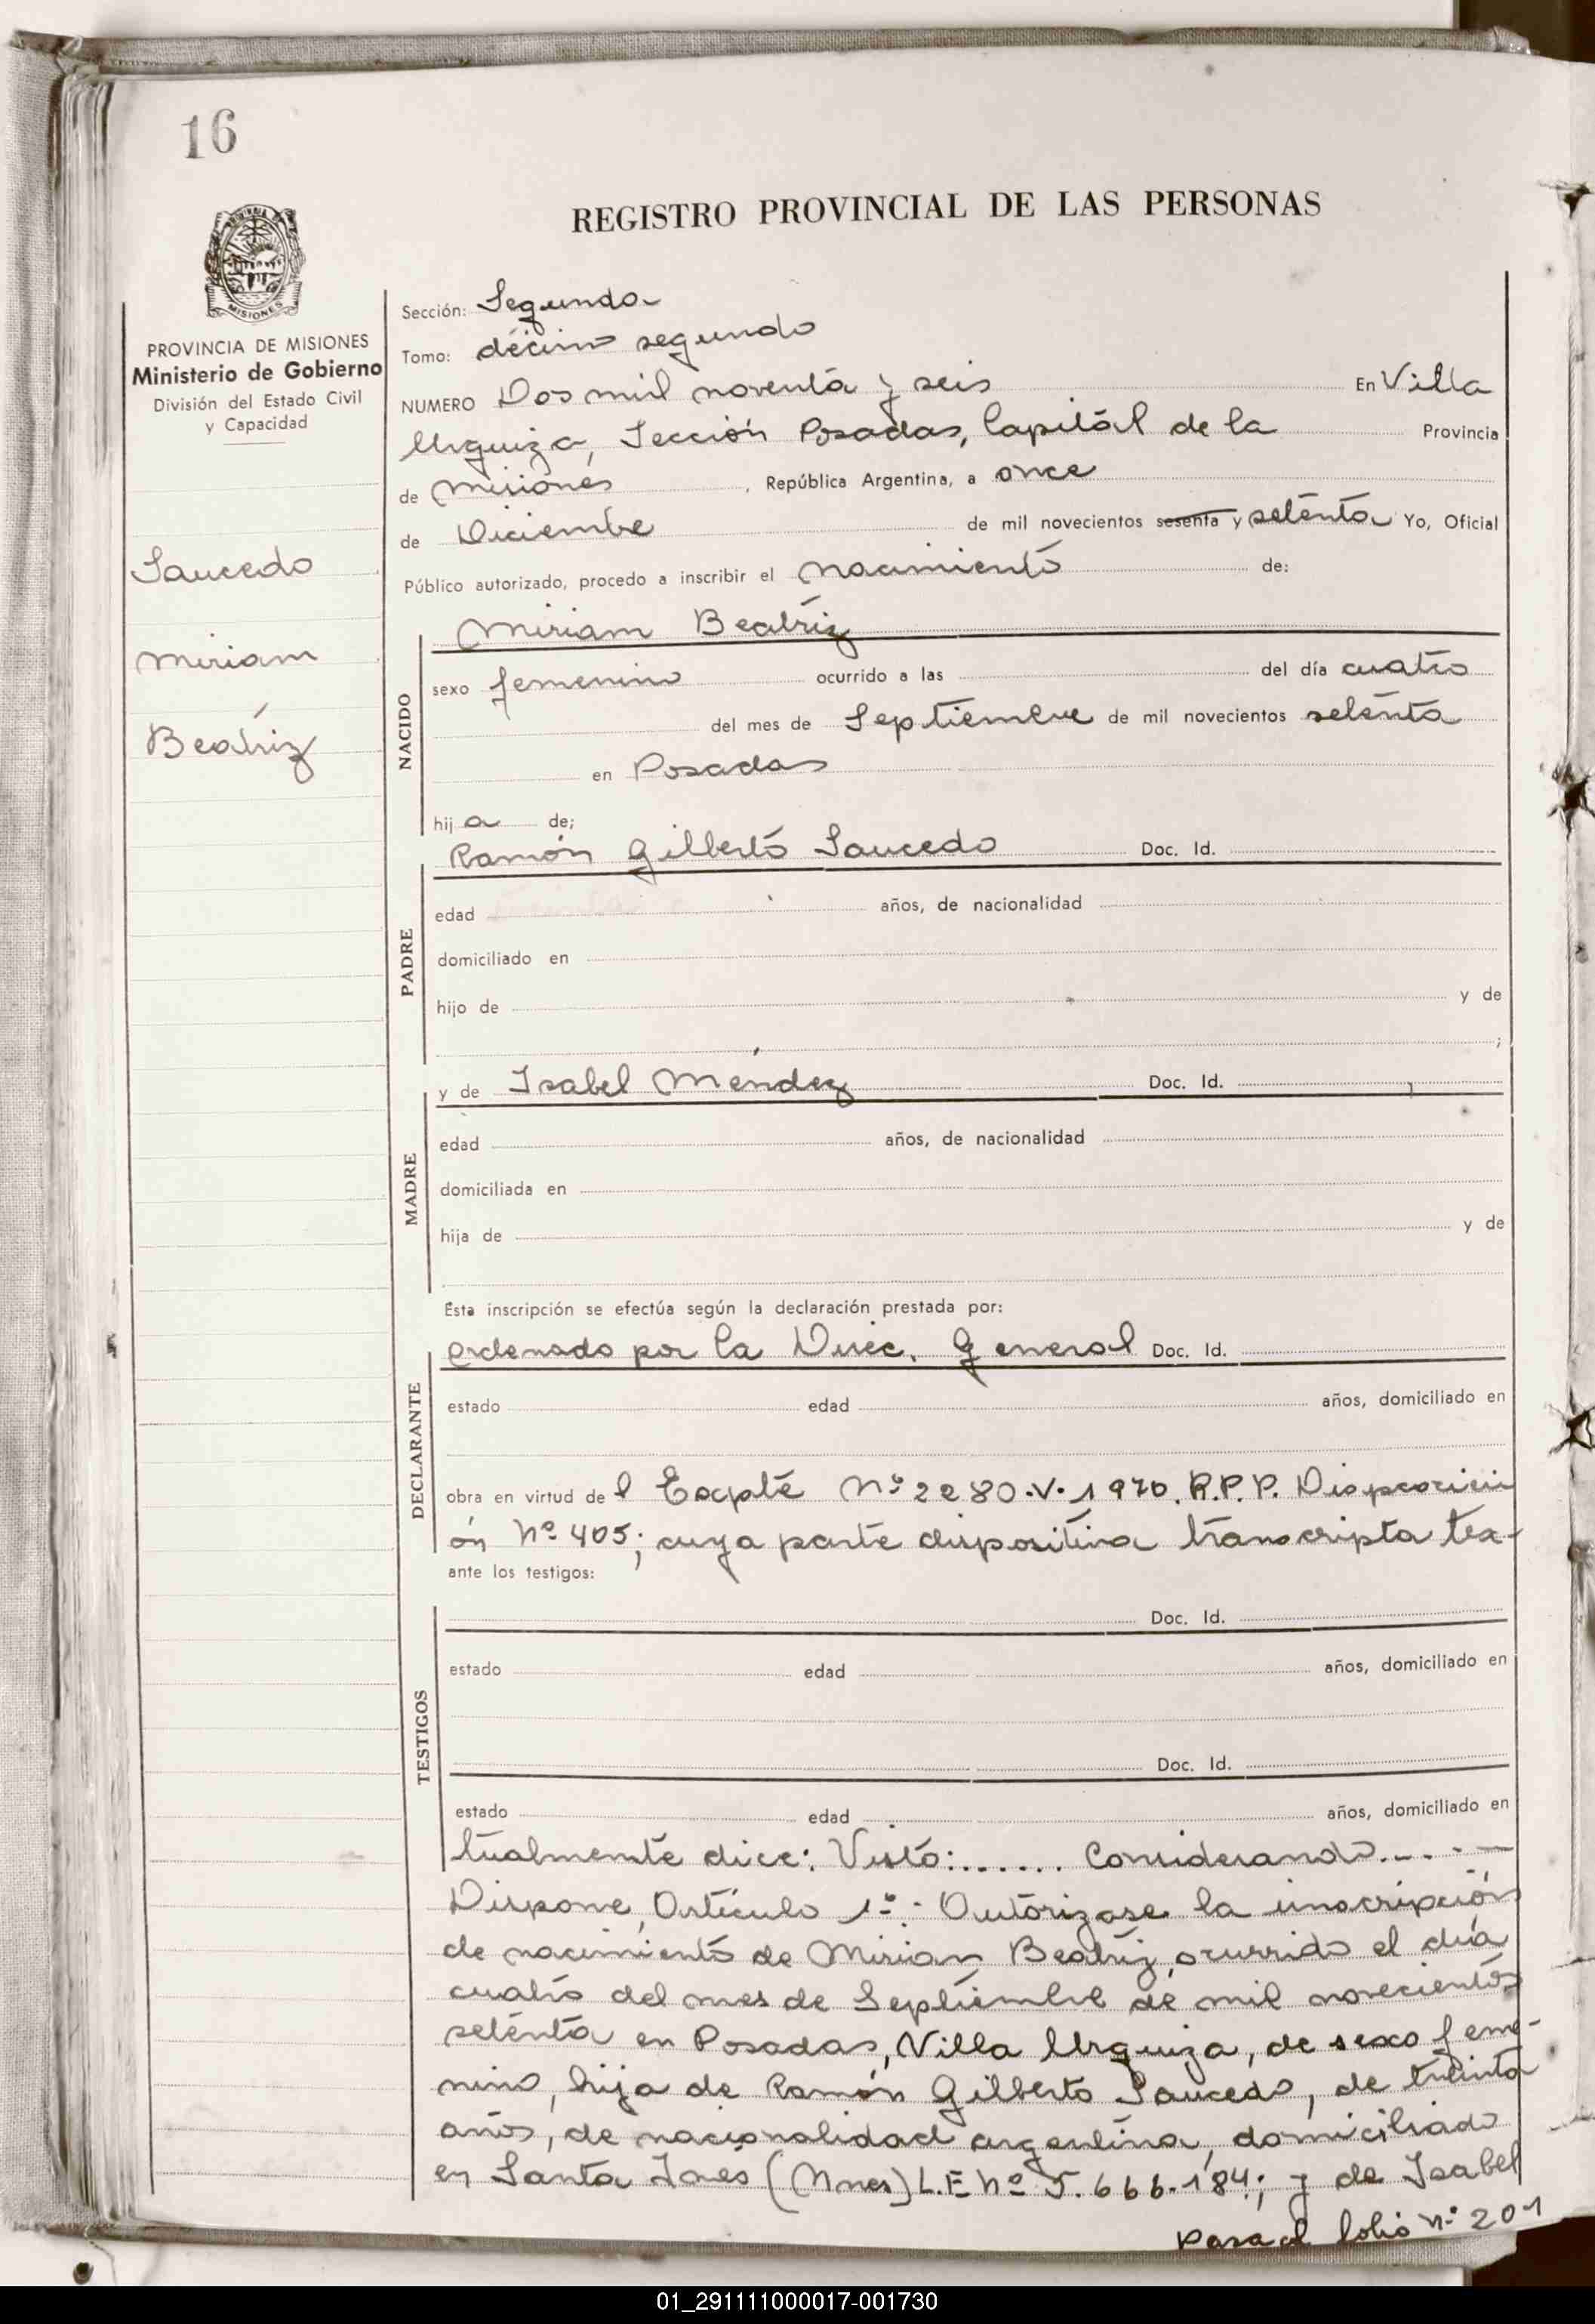 16
REGISTRO PROVINCIAL DE LAS PERSONAS
MISIONES
PROVINCIA DE MISIONES
Ministerio de Gobierno
División del Estado Civil
y Capacidad
Saucedo
Miriam
Beatriz
Sección: Segunda
Tomo: décimo segundo
NUMERO Dos mil noventa y seis En Villa
Urquiza, Sección Posadas, Capital de la Provincia
de Misiones, República Argentina, a once
de Diciembre de mil novecientos sesenta y setenta Yo, Oficial
Público autorizado, procedo a inscribir el nacimiento de:
NACIDO
Miriam Beatriz
sexo femenino ocurrido a las del día cuatro
del mes de Septiembre de mil novecientos setenta
en Posadas
hija de;
PADRE
Ramón Gilberto Saucedo Doc. Id.
edad años, de nacionalidad
domiciliado en
hijo de y de
;
MADRE
y de Isabel Méndez Doc. Id.
edad años, de nacionalidad
domiciliada en
hija de y de
Esta inscripción se efectúa según la declaración prestada por:
DECLARANTE
ordenado por la Direc. General Doc. Id.
estado edad años, domiciliado en
obra en virtud del Expte Nº 2280.V.1970. R.P.P.
ón Nº 405; cuya parte dispositiva transcripta tex-
ante los testigos:
TESTIGOS
Doc. Id.
estado edad años, domiciliado en
Doc. Id.
estado edad años, domiciliado en
tualmente dice: Visto:...... Considerando.....
Dispone, Artículo 1º: Autorizase la inscripción
de nacimiento de Mirian Beatriz, ocurrido el día
cuatro del mes de Septiembre de mil novecientos
setenta en Posadas, Villa Urquiza, de sexo feme-
nino, hija de Ramón Gilberto Saucedo, de treinta
años, de nacionalidad argentina, domiciliado
en Santa Inés (Mnes) L.E Nº 5.666.184; y de Isabel
Pasa al folio nº 201
01_291111000017-001730